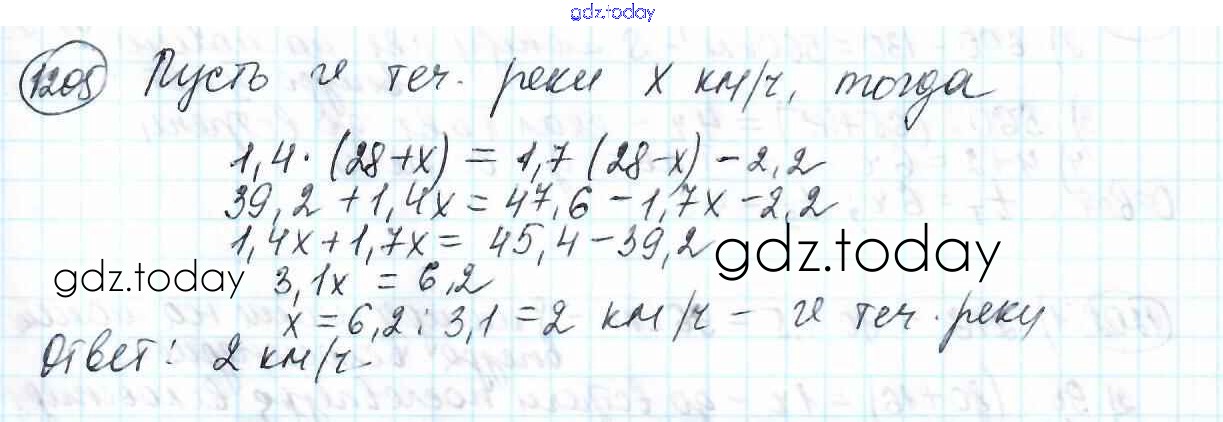 gdz.today
1205 Пусть ϑ теч. реки x км/ч, тогда
1,4·(28+x) = 1,7(28-x)-2,2
39,2+1,4x = 47,6-1,7x-2,2
1,4x+1,7x = 45,4-39,2
gdz.today
gdz.today
3,1x = 6,2
x=6,2:3,1=2 км/ч - ϑ теч. реки
Ответ: 2 км/ч